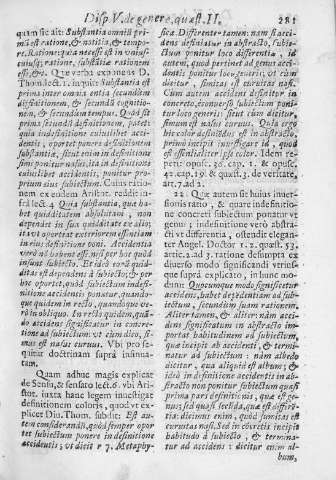 Disp. V. de genere, quæst. II. 281
quam sic ait: Substantia omnili pri-
mà est ratione, & notitia, & tempo-
re. Ratione: quia necesse est in vniuf-
cuiusq; ratione, substātiæ rationem
esse, &c. Quæ verba exponens D.
Thom. lect. 1. inquit Substantia est
prima inter omnia entia secundùm
definitionem, & secundū cognitio-
nem, & secundùm tempus. Quòd sit
prima secundùm definitionem, patet:
quia indefinitione cuiuslibet acci-
dentis, oportet ponere definitionem
substantiæ, sicut enim in definitione
simi ponitur nasus, ita in definitione
cuiuslibet accidentis, ponitur pro-
prium eius subiectum. Cuius ratio-
nem ex eodem Aristot. reddit in-
frà lect. 4 Quia substantia, quæ ha-
bet quidditatem absolutam, non
dependet in sua quidditate ex alio;
ita vt oporteat exteriorem essentiam
in eius definitione poni. Accidentia
verò nō habent esse nisi per hoc quòd
insunt subiecto. Et ideò eorū quid-
ditas est dependens à subiecto; & per
hoc oportet, quòd subiectum indefi-
nitione accidentis ponatur, quando-
que quidem in recto, quandoque ve-
rò in obliquo. In recto quidem, quā-
do accidens significatur in concre-
tione ad subiectum: vt cùm dico, si-
mus est nasus curuus. Vbi pro se-
quitur doctrinam suprà insinua-
tam.
Quam adhuc magis explicat
de Sensu, & sensato lect. 6. vbi Ari-
stot. iuxta hanc legem inuestigat
definitionem coloris, quod vt ex-
plicet Diu. Thom. subdit: Est au-
tem considerandū, quòd semper opor
tet subiectum ponere in definitione
accidentis; vt dicit r 7. Metaphy-
sicæ. Differenter tamen: nam si acci-
dens definiatur in abstracto, subie-
ctum ponitur loco differentiæ, id
autem, quod pertinet ad genus acci-
dentis ponitur loco generis; vt cùm
dicitur, simitas est curuitas nasi.
Cùm autem accidens definitur in
concreto, è conuerso subiectum poni-
tur loco generis: sicut cùm dicitur,
simum est nasus curuus. Quia ergo
hic color definitus est in abstracto,
primò incipit inuestigare id, quod
est essentialiter ipse color. Idem re-
peries opusc. 36. cap. 1. & opusc.
42. cap. 19. & quæst. 3. de veritate,
art. 7. ad 2.
22 Quæ autem sit huius inuer-
sionis ratio, & quare indefinitio-
ne concreti subiectum ponatur vt
genus; indefinitione verò abstra-
cti vt differentia, ostendit elegan-
ter Angel. Doctor 1. 2. quæst. 53,
artic. 2. ad 3. ratione desumpta ex
diuerso modo significandi vtrius-
que suprà explicato, in hunc mo-
dum: Quocumque modo significetur
accidens, habet depēdentiam ad sub-
iectum, secundùm suam rationem,
Aliter tamen, & aliter: nàm acci-
dens significatum in abstracto im-
portat habitudinem ad subiectum,
quæ incipit ab accidenti, & termi-
natur ad subiectum: nàm albedo
dicitur, qua aliquid est album; &
ideò in definitione accidentis in ab-
stracto non ponitur subiectum quasi
prima pars definitionis, quæ est ge-
nus; sed quasi secūda, quæ est diffe-
rētia: dicimus enim, quòd simitas est
curuitas nasi. Sed in cōcretis incipit
habitudo à subiecto, & termina-
tur ad accidens: dicitur enim al-
bum,